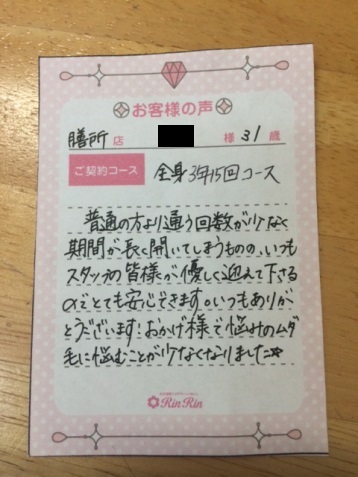 お客様の声
膳所店 様 31歳
ご契約コース 全身3年15回コース
普通の方より通う回数が少なく
期間が長く開いてしまうものの、いつも
スタッフの皆様が優しく迎えて下さる
のでとても安心できます。いつもありが
とうございます!おかげ様で悩みのムダ
毛に悩むことが少なくなりました☆
RinRin